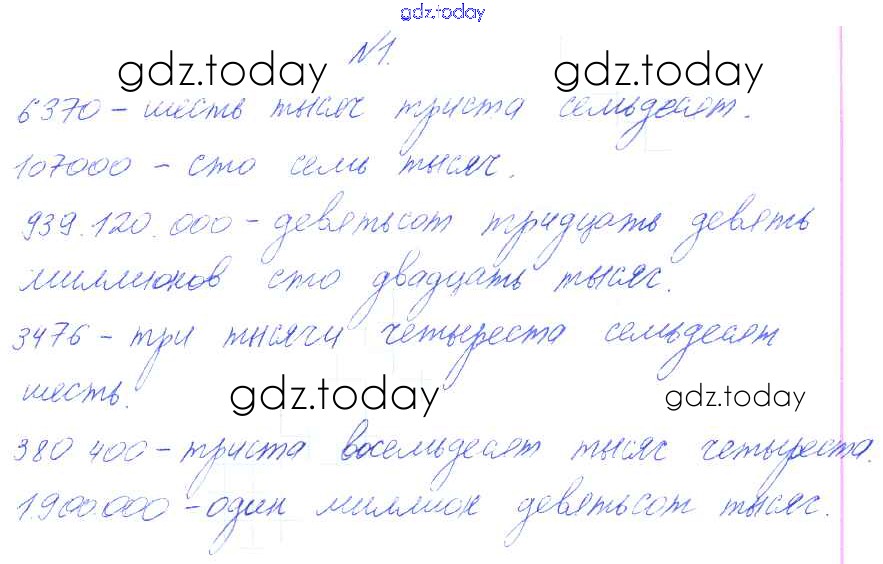 gdz.today
№1.
gdz.today gdz.today
6370 – шесть тысяч триста семьдесят.
107000 – сто семь тысяч.
939.120.000 – девятьсот тридцать девять
миллионов сто двадцать тысяч.
3476 – три тысячи четыреста семьдесят
шесть.
gdz.today gdz.today
380 400 – триста восемьдесят тысяч четыреста.
1.900.000 – один миллион девятьсот тысяч.